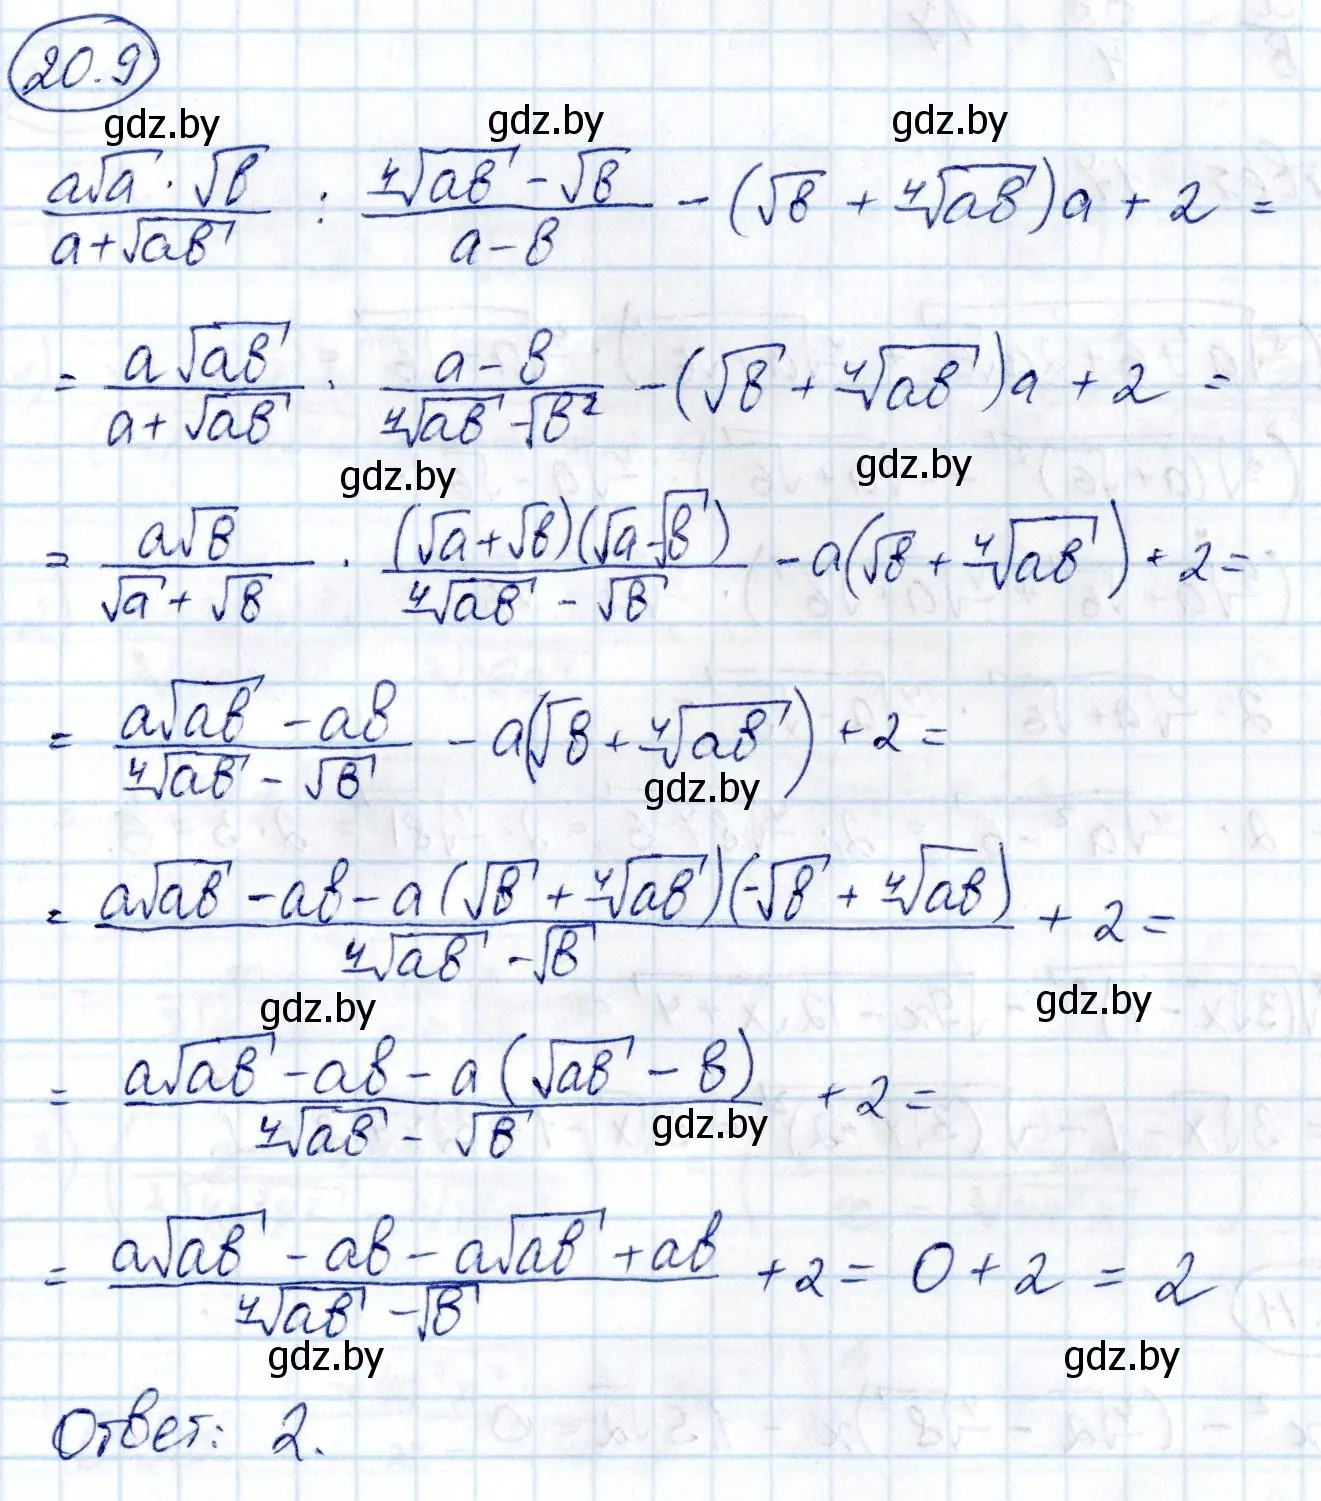 20.9
gdz.by gdz.by gdz.by
a√a · √b / (a+√ab) : (⁴√ab - √b) / (a-b) - (√b + ⁴√ab)a + 2 =
= a√ab / (a+√ab) · (a-b) / (⁴√ab - √b²) - (√b + ⁴√ab)a + 2 =
gdz.by gdz.by
= a√b / (√a+√b) · (√a+√b)(√a-√b) / (⁴√ab - √b) - a(√b + ⁴√ab) + 2 =
= (a√ab - ab) / (⁴√ab - √b) - a(√b + ⁴√ab) + 2 =
gdz.by
= (a√ab - ab - a(√b + ⁴√ab)(-√b + ⁴√ab)) / (⁴√ab - √b) + 2 =
gdz.by gdz.by
= (a√ab - ab - a(√ab - b)) / (⁴√ab - √b) + 2 =
gdz.by
= (a√ab - ab - a√ab + ab) / (⁴√ab - √b) + 2 = 0 + 2 = 2
gdz.by gdz.by
Ответ: 2.